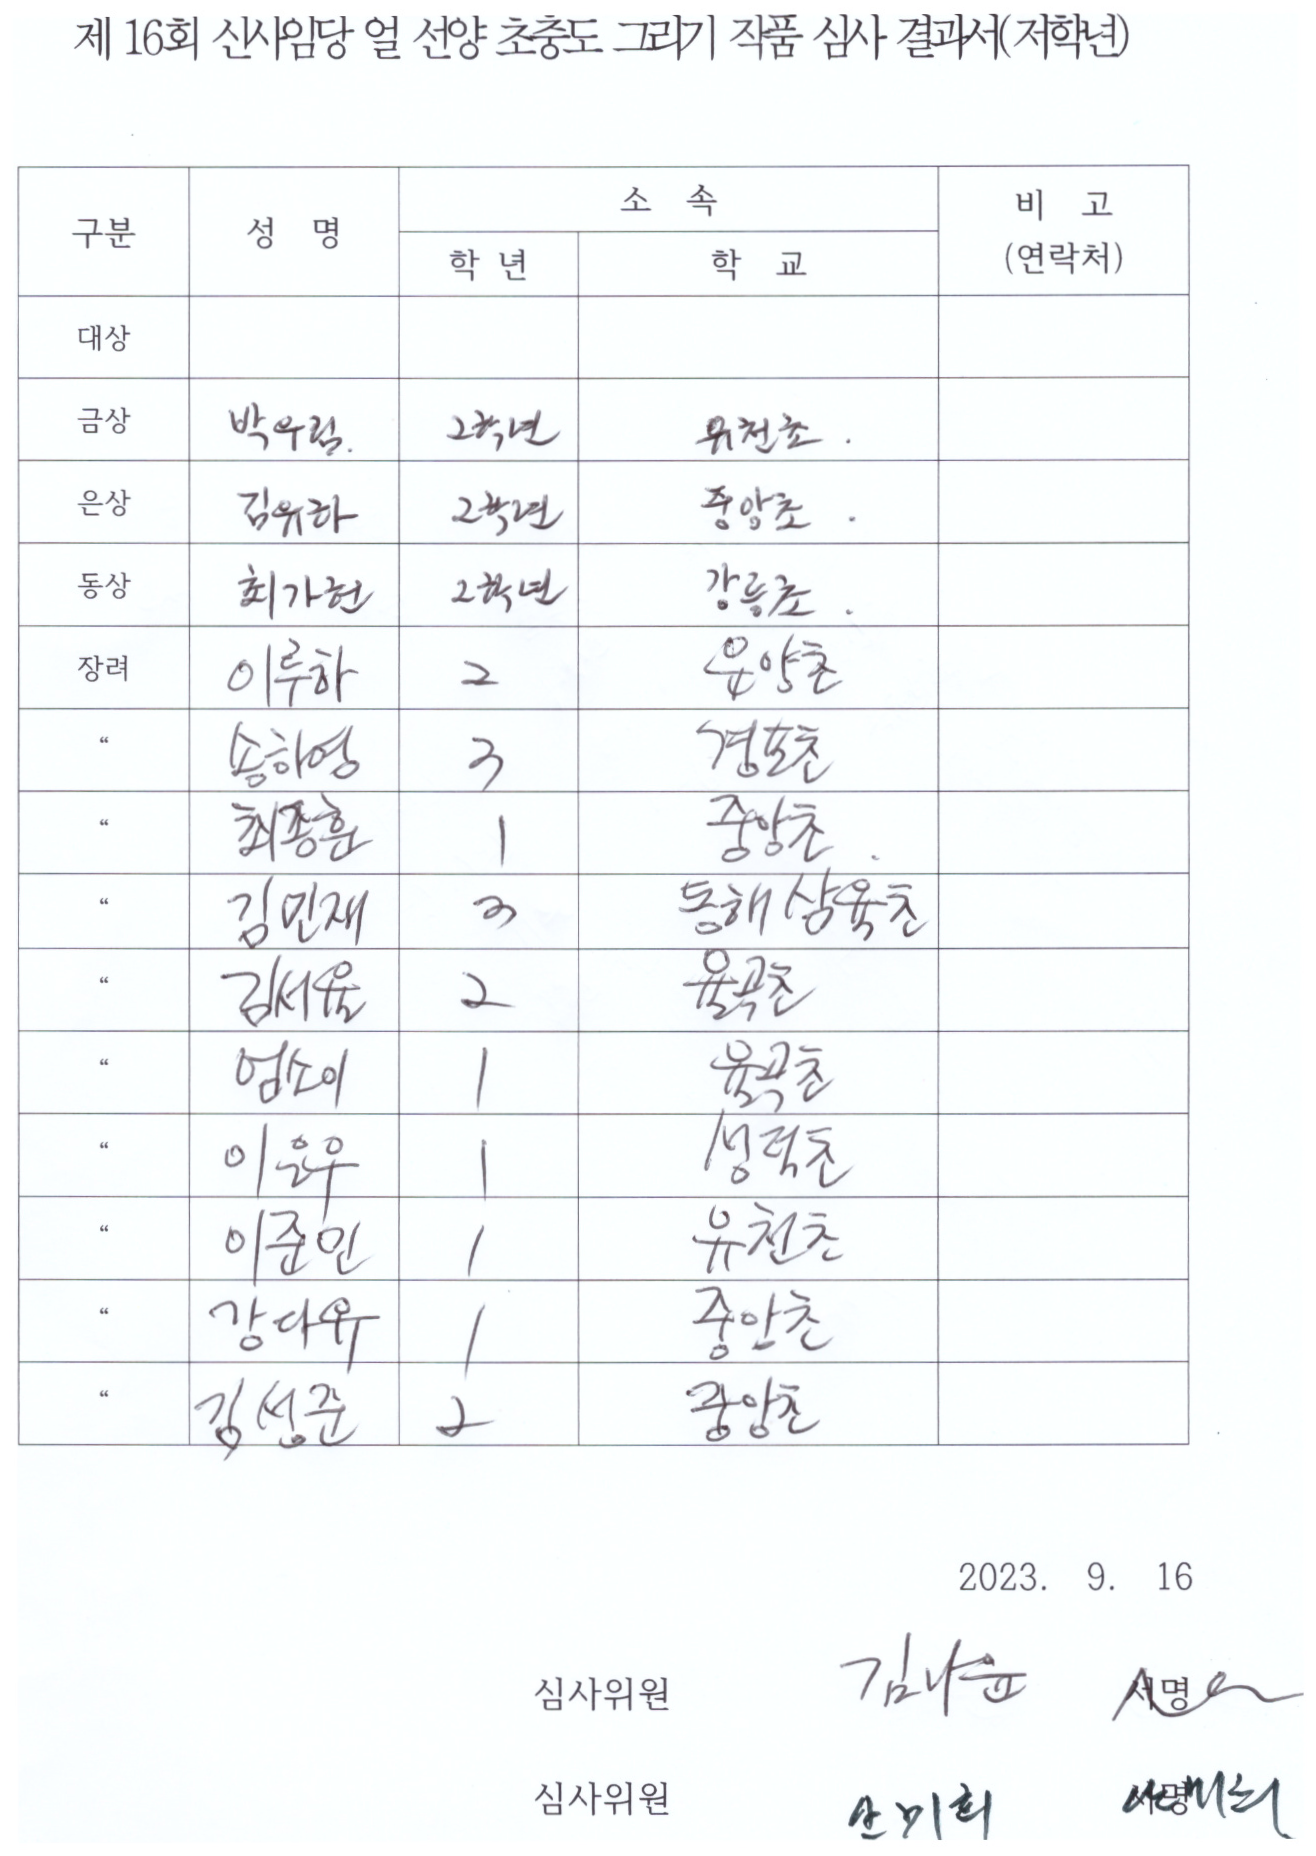 제 16회 신사임당 얼 선양 초충도 그리기 작품 심사 결과서(저학년)
구분 성 명 소 속 비 고
(연락처)
학 년 학 교
대상
금상 박우림. 2학년 유천초 .
은상 김유하 2학년 중앙초 .
동상 최가현 2학년 강릉초 .
장려 이루하 2 운양초
“ 송하영 3 경포초
“ 최종훈 1 중앙초 .
“ 김민재 3 동해삼육초
“ 김서율 2 율곡초
“ 엄소이 1 율곡초
“ 이은우 1 성덕초
“ 이준민 1 유천초
“ 강다유 1 중앙초
“ 김성준 2 중앙초
2023. 9. 16
심사위원 김나윤 서명
심사위원 서명